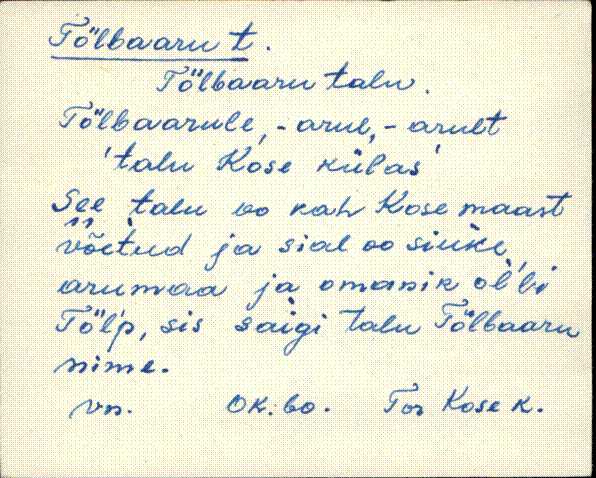 Tölbaaru t.
Tölbaaru talu.
Tölbaarule, -arul, -arult
'talu Kose külas'
See talu oo kah Kose maast
võetud ja sial oo siuke
arumaa ja omanik ol'li
Tölp, sis saigi talu Tölbaaru
nime.
vn. OK. 60. Tor Kose k.